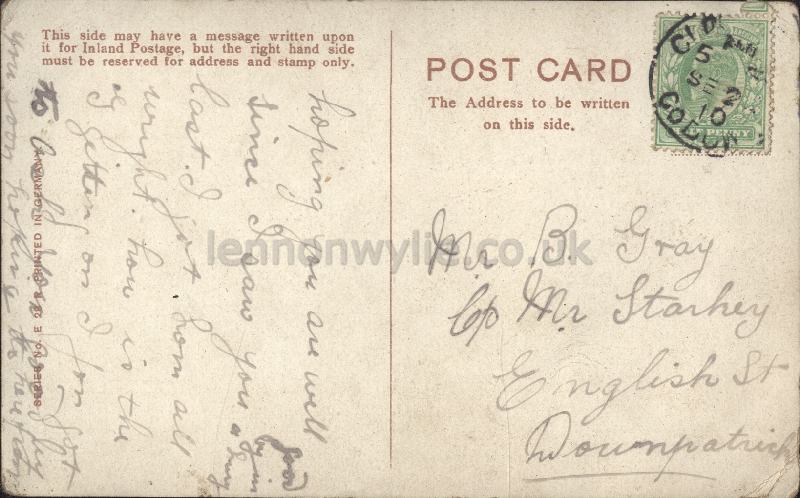 This side may have a message written upon
it for Inland Postage, but the right hand side
must be reserved for address and stamp only.
hoping you are well
since I saw you
last. I got home all
wright. how is the
getting on I
you soon hoping to
SERIES No. E 23 R PRINTED IN GERMANY
POST CARD
The Address to be written
on this side.
5
SE 2
10
CO DOWN
PENNY
Mr B. Gray
C/o Mr Starkey
English St
Downpatrick
lennonwylie.co.uk